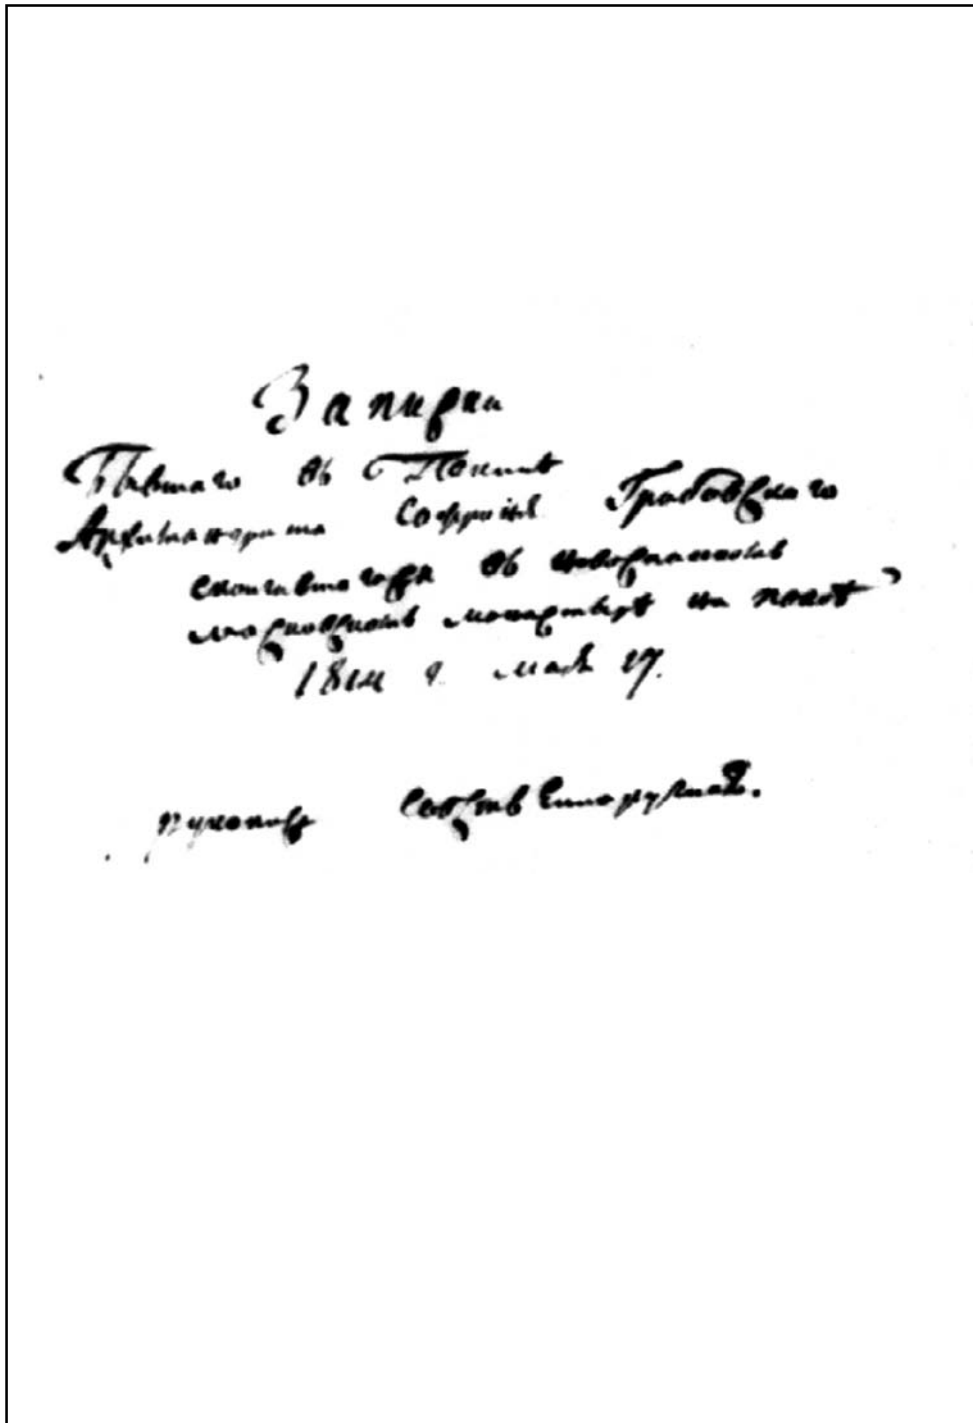 Записки
Бывшаго въ Пекинѣ
Архимандрита Софронія Грибовскаго
скончавшагося въ новоспасскомъ
московскомъ монастырѣ на покоѣ
1814 г. мая 17.
рукопись собственноручная.